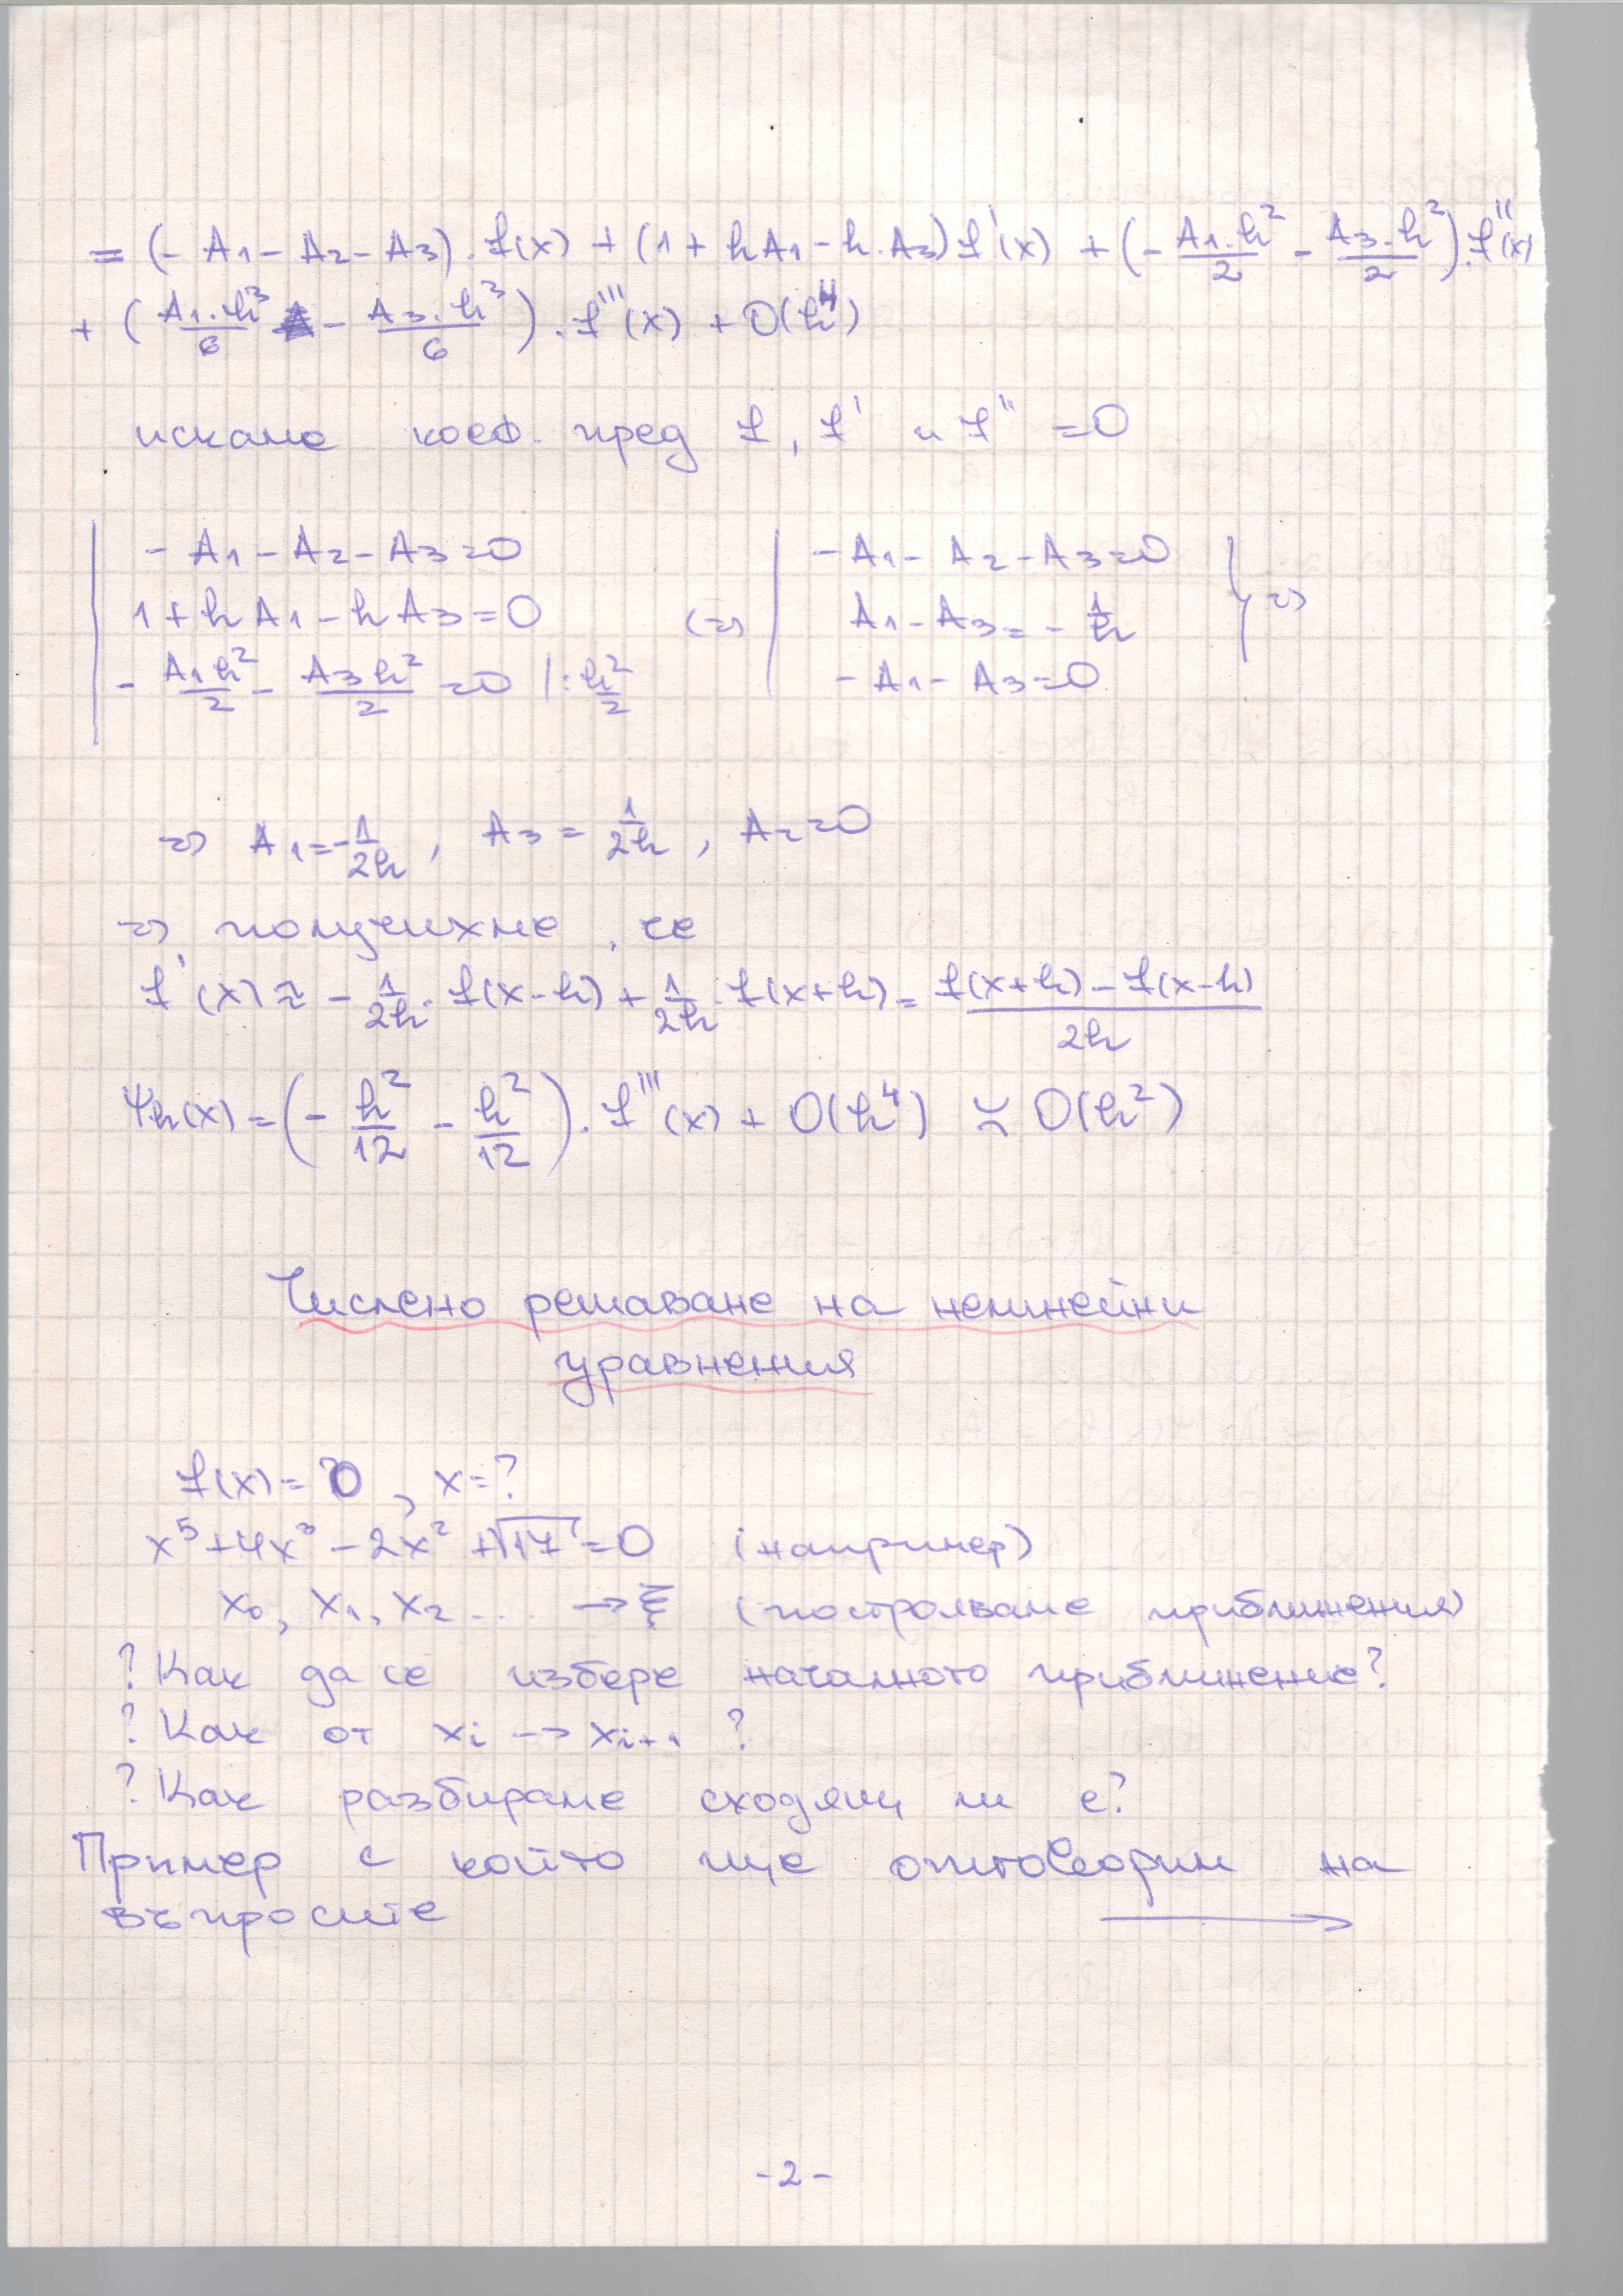 = (- A₁ - A₂ - A₃) . f(x) + (1 + hA₁ - h.A₃) f'(x) + (- A₁.h²/2 - A₃.h²/2) . f''(x)
+ (A₁.h³/6 - A₃.h³/6) . f'''(x) + O(h⁴)
искаме коеф. пред f, f' и f'' = 0
- A₁ - A₂ - A₃ = 0 - A₁ - A₂ - A₃ = 0
1 + hA₁ - hA₃ = 0 <=> A₁ - A₃ = - 1/h } =>
- A₁h²/2 - A₃h²/2 = 0 | : h²/2 - A₁ - A₃ = 0
=> A₁ = - 1/2h , A₃ = 1/2h , A₂ = 0
=> получихме, че
f'(x) ≈ - 1/2h . f(x-h) + 1/2h . f(x+h) = f(x+h) - f(x-h)/2h
Ψh(x) = (- h²/12 - h²/12) . f'''(x) + O(h⁴) ≍ O(h²)
Числено решаване на нелинейни
уравнения
f(x) = 0 , x = ?
x⁵ + 4x³ - 2x² + √17 = 0 (например)
x₀, x₁, x₂ ... → ξ (построяваме приближения)
? Как да се избере началното приближение?
? Как от xᵢ → xᵢ₊₁ ?
? Как разбираме сходящ ли е?
Пример с който ще отговорим на
въпросите →
- 2 -